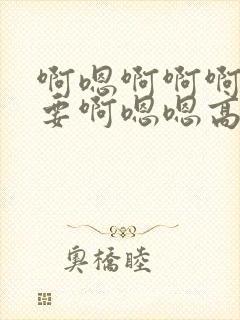 啊嗯啊啊啊
要啊嗯嗯高
奥橋睦